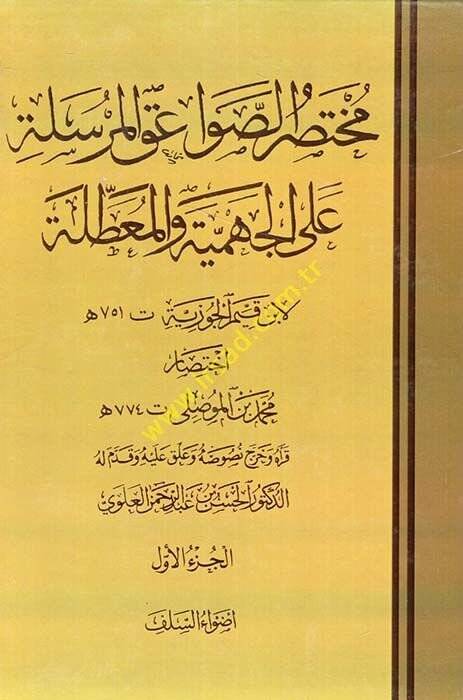 مختصر الصواعق المرسلة
على الجهمية والمعطلة
لابن قيم الجوزية ت ٧٥١ هـ
اختصار
محمد بن الموصلي ت ٧٧٤ هـ
قرأه وخرج نصوصه وعلق عليه وقدم له
الدكتور الحسن بن عبد الرحمن العلوي
الجزء الأول
أضواء السلف